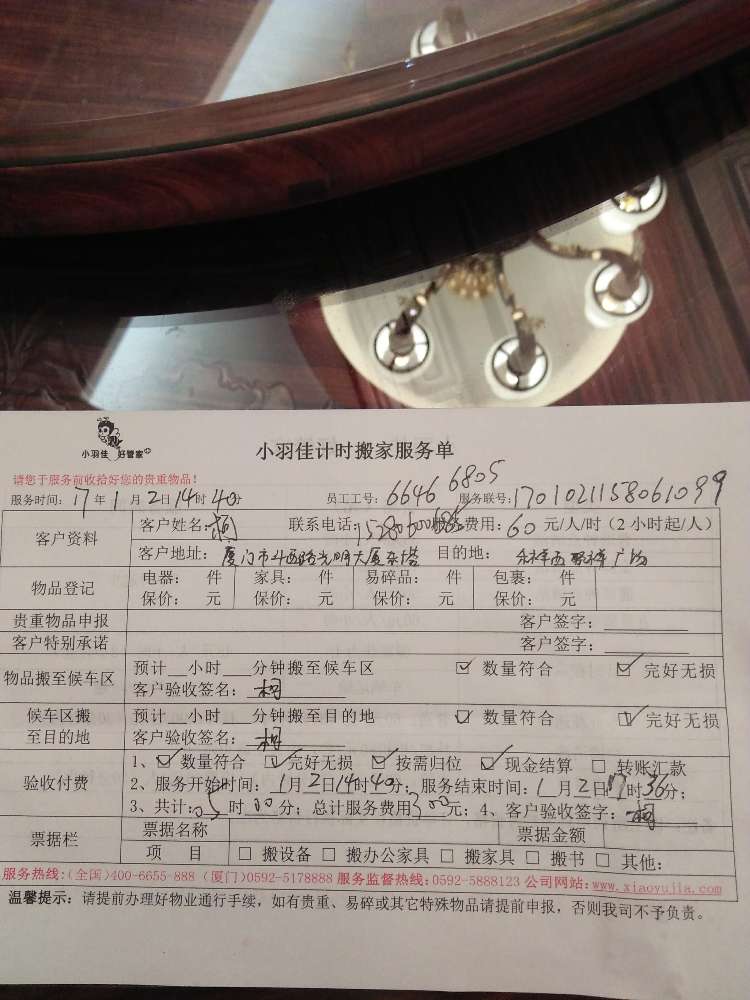 小羽佳 好管家
小羽佳计时搬家服务单
请您于服务前收拾好您的贵重物品!
服务时间: 17 年 1 月 2 日 14 时 40 分 员工工号: 6646 6805 服务联号: 1701021158061099
客户资料 客户姓名: 柯 联系电话: 费用: 60 元/人/时 (2 小时起/人)
客户地址: 厦门市 光明大厦 目的地: 广场
物品登记 电器: 件 家具: 件 易碎品: 件 包裹: 件
保价: 元 保价: 元 保价: 元 保价: 元
贵重物品申报 客户签字:
客户特别承诺 客户签字:
物品搬至候车区 预计 小时 分钟搬至候车区 ☑ 数量符合 ☑ 完好无损
客户验收签名: 柯
候车区搬至目的地 预计 小时 分钟搬至目的地 ☑ 数量符合 ☑ 完好无损
客户验收签名: 柯
验收付费 1、☑ 数量符合 ☑ 完好无损 ☑ 按需归位 ☑ 现金结算 □ 转账汇款
2、服务开始时间: 1 月 2 日 14 时 40 分; 服务结束时间: 1 月 2 日 17 时 36 分;
3、共计: 05 时 00 分; 总计服务费用 300 元; 4、客户验收签字: 柯
票据栏 票据名称 票据金额
项 目 □ 搬设备 □ 搬办公家具 □ 搬家具 □ 搬书 □ 其他:
服务热线:(全国)400-6655-888 (厦门)0592-5178888 服务监督热线:0592-5888123 公司网站:www.xiaoyujia.com
温馨提示: 请提前办理好物业通行手续, 如有贵重、易碎或其它特殊物品请提前申报, 否则我司不予负责。